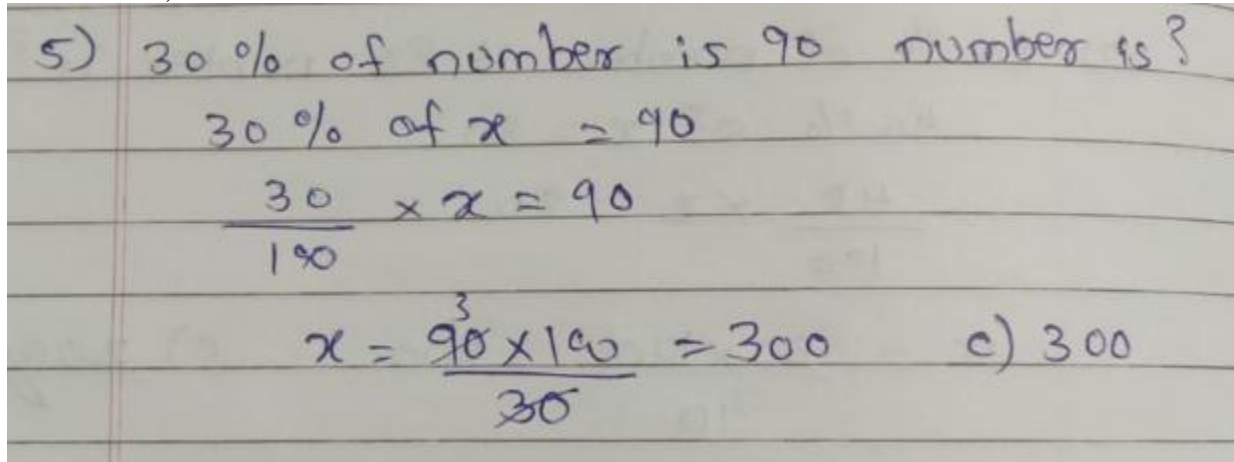 5) 30% of number is 90 number is?
30% of x = 90
30/100 × x = 90
3
x = 90×100/30 = 300 c) 300